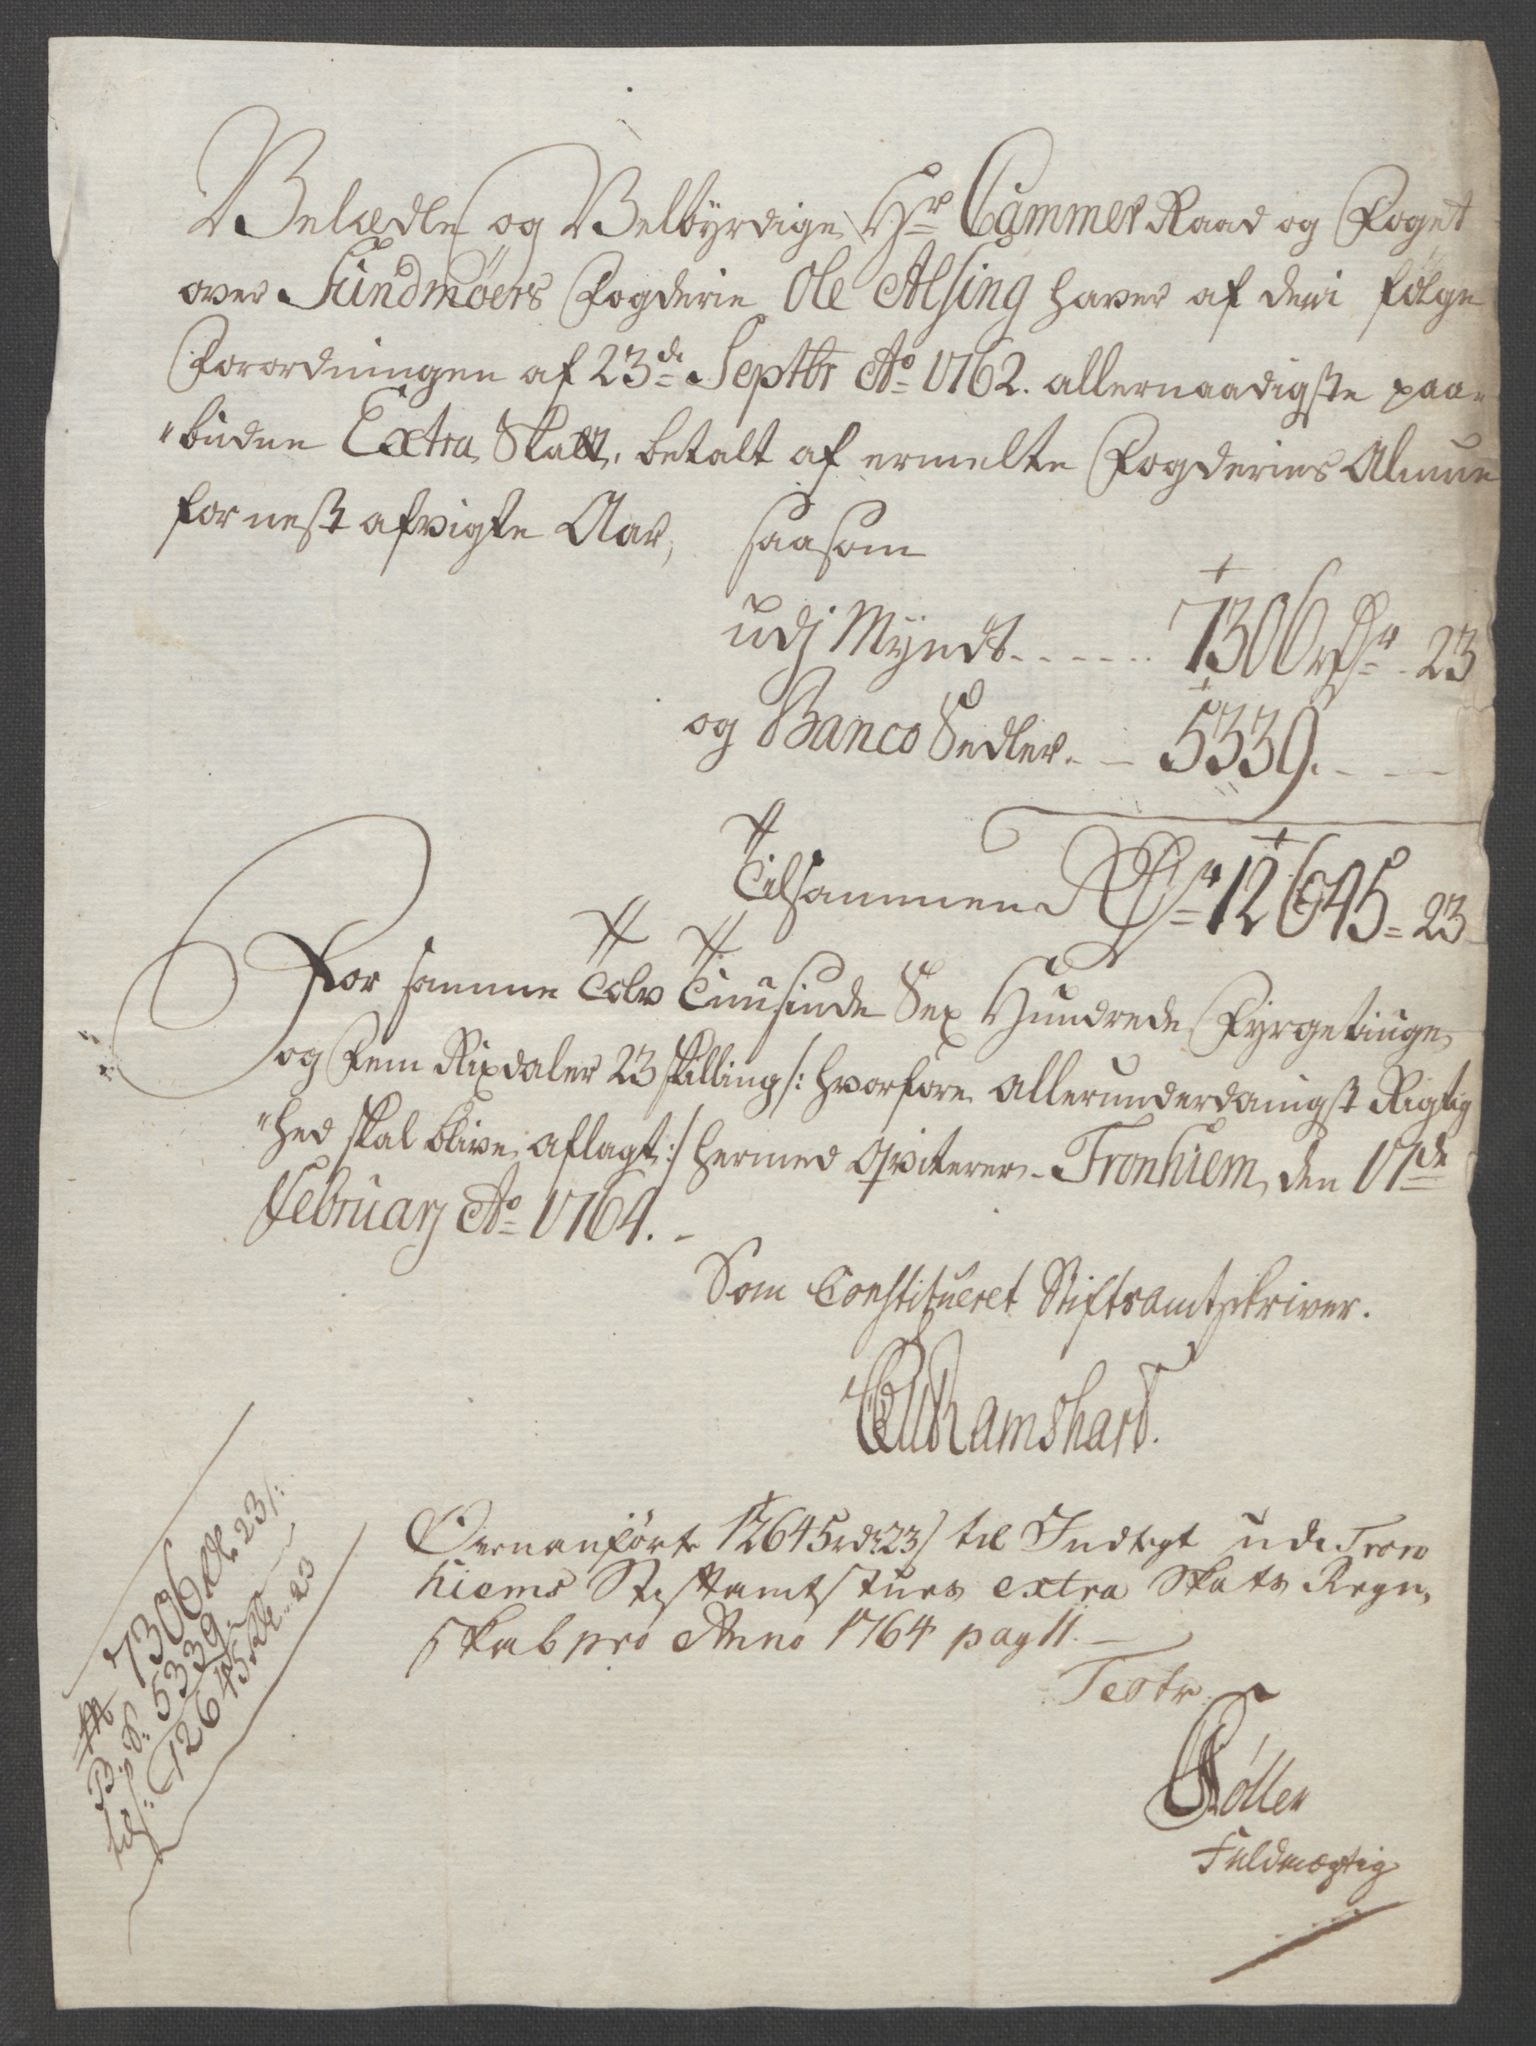 Velædle og Velbyrdige Hr Cammer Raad og Foget
over Sundmøers Fogderie Ole Alsing haver af den i følge
Forordningen af 23de Septbr Ao 1762. allernaadigste paa-
"budne Extra Skatt, betalt af ermelte Fogderies Almue
for nest afvigte Aar, saasom
udj Myndt ...... 7306 rdr 23
og Banco Sedler. - 5339. - -
Tilsammen Rdr 12645 = 23
For samme Tolv Tuusinde Sex Hundrede Fyrgetiuge
og Fem Rixdaler 23 skilling /: hvorfore allerunderdanigst Rigtig
"hed skal blive aflagt :/ hermed Qviterer - Tronhiem, den 17de
Februarj Ao 1764. -
Som Constitueret Stiftsamtskriver.
Ramshart.
Ovenanførte 12645 rd 23 / til Indtegt udi Tron
hiems Stiftamtstues extra Skats Regn-
skab pro Anno 1764 pag 11. -
Teste
Fuldmægtig
M 7306 rdl. 23 /:
B. S: 5339 -
tils: 12645 Rdl - 23